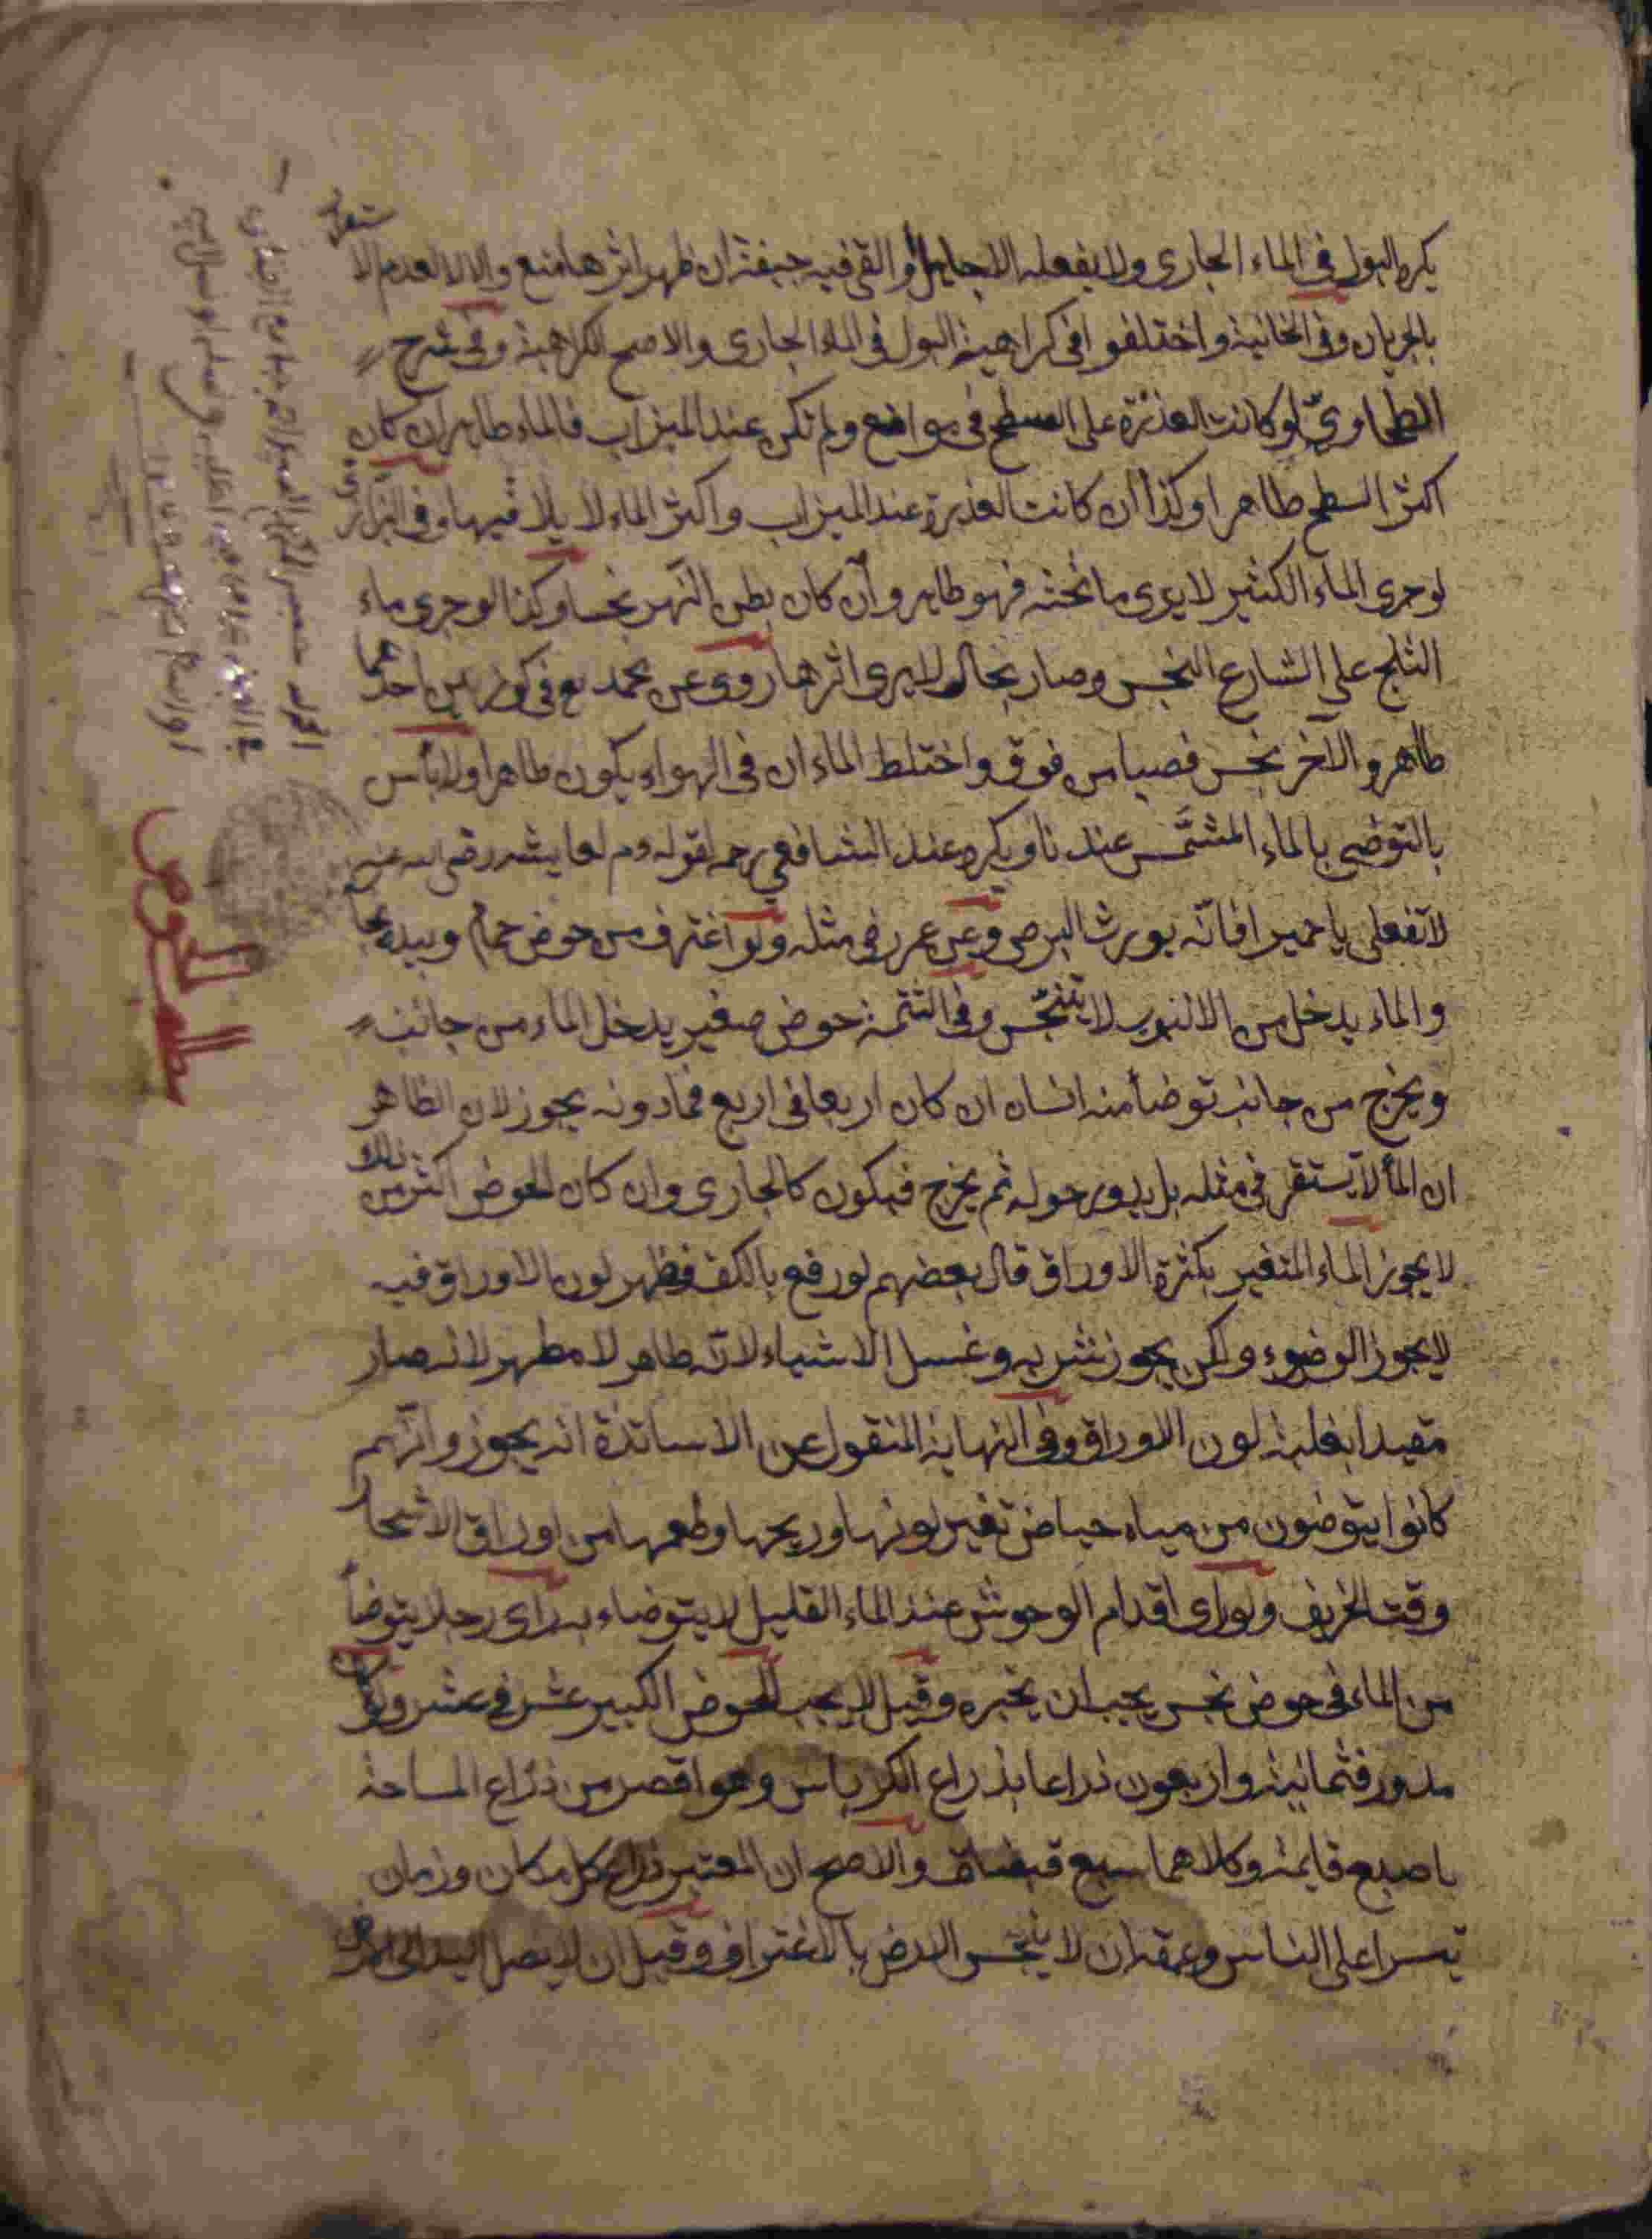 يكره البول في الماء الجاري ولا يفعله الا جاهل ولو القى فيه جيفة ان ظهر اثرها منع والا لا لعدم الا ستقرار
بالجريان وفى الخانية واختلفوا فى كراهية البول فى الماء الجارى والاصح الكراهية وفى شرح
الطحاوىّ لو كانت العذرة على السطح فى مواضع ولم تكن عند الميزاب فالماء طاهر ان كان
اكثر السطح طاهرا وكذا ان كانت العذرة عند الميزاب واكثر الماء لا يلاقيها وفى البزازية
لو جرى الماء الكثير لا يرى ما تحته فهو طاهر وان كان بطن النهر نجسا وكذا لو جرى ماء
الثلج على الشارع النجس وصار بحال لا يرى اثرها روى عن محمد رع فى كوزين احدهما
طاهر والآخر نجس فصبا من فوق واختلط الماءان فى الهواء يكون طاهرا ولا بأس
بالتوضى بالماء المشمّس عندنا ويكره عند الشافعي رحمه لقوله عم لعايشه رضى الله عنها
لا تفعلى يا حميرا فانّه يورث البرص وعن عمر رض مثله ولو اغترف من حوض حمام وبيده نجا
والماء يدخل من الانبوب لا يتنجّس وفى التتمة حوض صغير يدخل الماء من جانب
ويخرج من جانب توضأ منه انسان ان كان اربعا فى اربع فما دونه يجوز لان الظاهر
ان الماء لا يستقر فى مثله بل يدور حوله ثم يخرج فيكون كالجارى وان كان الحوض اكثر من ذلك
لا يجوز الماء المتغير بكثرة الاوراق قال بعضهم لو رفع بالكف فظهر لون الاوراق فيه
لا يجوز الوضوء ولكن يجوز شربه وغسل الاشياء لانّه طاهر لا مطهر لانه صار
مقيدا بغلبة لون الاوراق وفى النهاية المنقول عن الاساتذة انه يجوز وانّهم
كانوا يتوضون من مياه حياض تغير لونها وريحها وطعمها من اوراق الاشجار
وقت الخريف ولو رأى اقدام الوحوش عند الماء القليل لا يتوضاء به رأى رجلا يتوضأ
من الماء فى حوض نجس يجب ان يخبره وقيل لا يجب الحوض الكبير عشر فى عشر ولو كان
مدور فثمانية واربعون ذراعا بذراع الكرباس وهو اقصر من ذراع المساحة
باصبع قايمة وكلاهما سبع قبضات والاصح ان المعتبر ذراع كل مكان وزمان
تيسيرا على الناس وعمقه ان لا ينجس الارض بالاغتراف وقيل ان لا يصل اليد الى الارض
مطلب الحوض